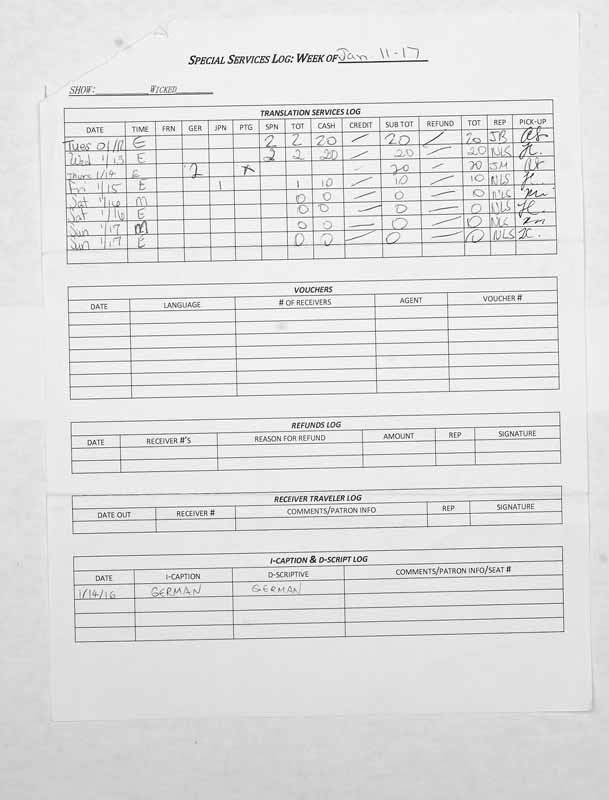 SPECIAL SERVICES LOG: WEEK OF Jan 11-17
SHOW: WICKED
TRANSLATION SERVICES LOG
DATE TIME FRN GER JPN PTG SPN TOT CASH CREDIT SUB TOT REFUND TOT REP PICK-UP
Tues 01/12 E 2 2 20 20 20 JB
Wed 1/13 E 2 2 20 20 20 NLS
Thurs 1/14 E 2 20 20 JM
Fri 1/15 E 1 1 10 10 10 NLS
Sat 1/16 M 0 0 0 0 NLS
Sat 1/16 E 0 0 0 0 NLS
Sun 1/17 M 0 0 0 0 NLS
Sun 1/17 E 0 0 0 0 NLS
VOUCHERS
DATE LANGUAGE # OF RECEIVERS AGENT VOUCHER #
REFUNDS LOG
DATE RECEIVER #'S REASON FOR REFUND AMOUNT REP SIGNATURE
RECEIVER TRAVELER LOG
DATE OUT RECEIVER # COMMENTS/PATRON INFO REP SIGNATURE
I-CAPTION & D-SCRIPT LOG
DATE I-CAPTION D-SCRIPTIVE COMMENTS/PATRON INFO/SEAT #
1/14/16 GERMAN GERMAN